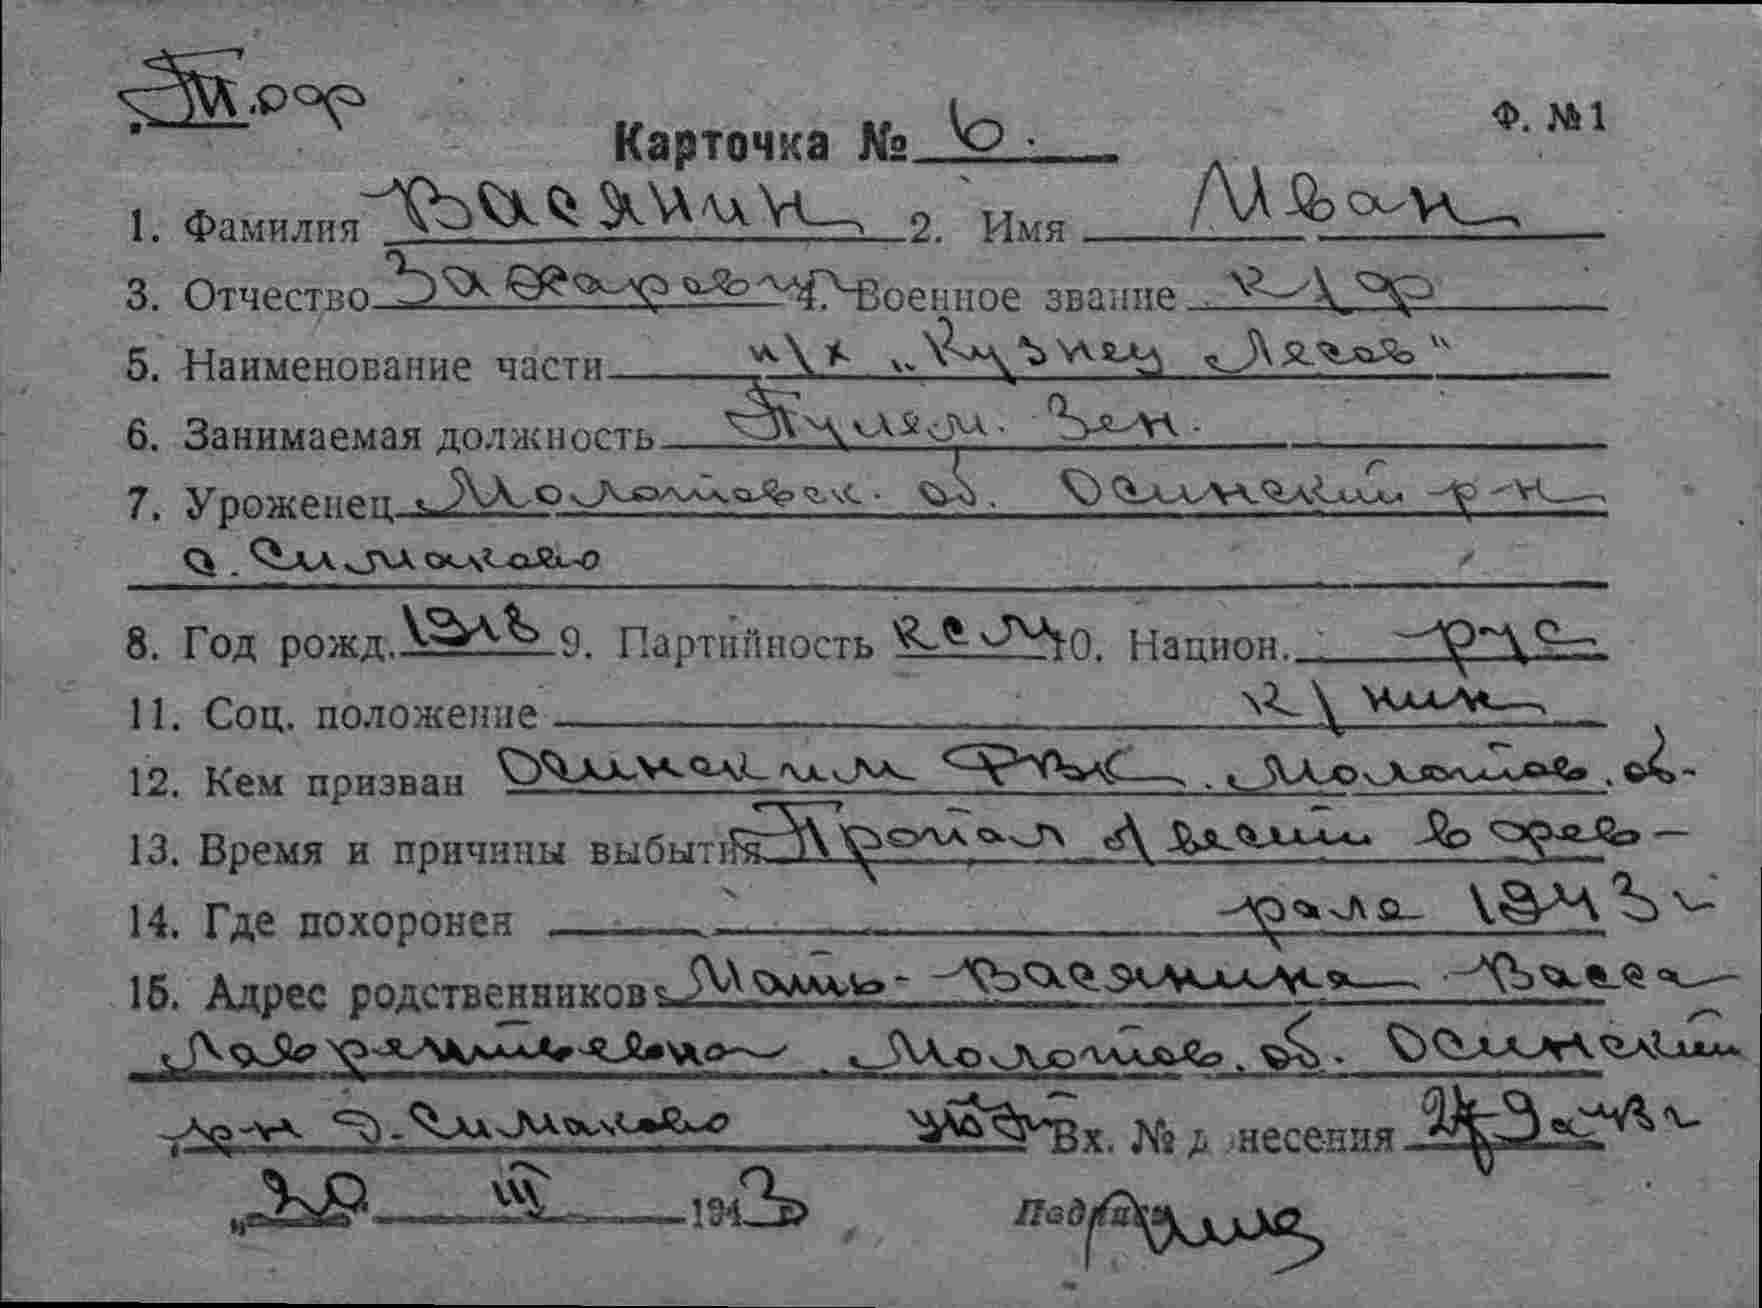 Т.оф
Ф. №1
Карточка № 6.
1. Фамилия Васянин 2. Имя Иван
3. Отчество Захарович 4. Военное звание к/ф
5. Наименование части п/х „Кузнец Лесов"
6. Занимаемая должность Пулем. Зен.
7. Уроженец Молотовск. об. Осинский р-н
д. Симаково
8. Год рожд. 1918 9. Партийность ксм 10. Национ. рус
11. Соц. положение к/ник
12. Кем призван Осинским РВК. Молотов. об.
13. Время и причины выбытия Пропал б/вести в фев-
14. Где похоронен раля 1943 г
15. Адрес родственников Мать - Васянина Васса
Лаврентьевна. Молотов. об. Осинский
р-н д. Симаково Вх. № донесения
„20 III 1943 Подпись